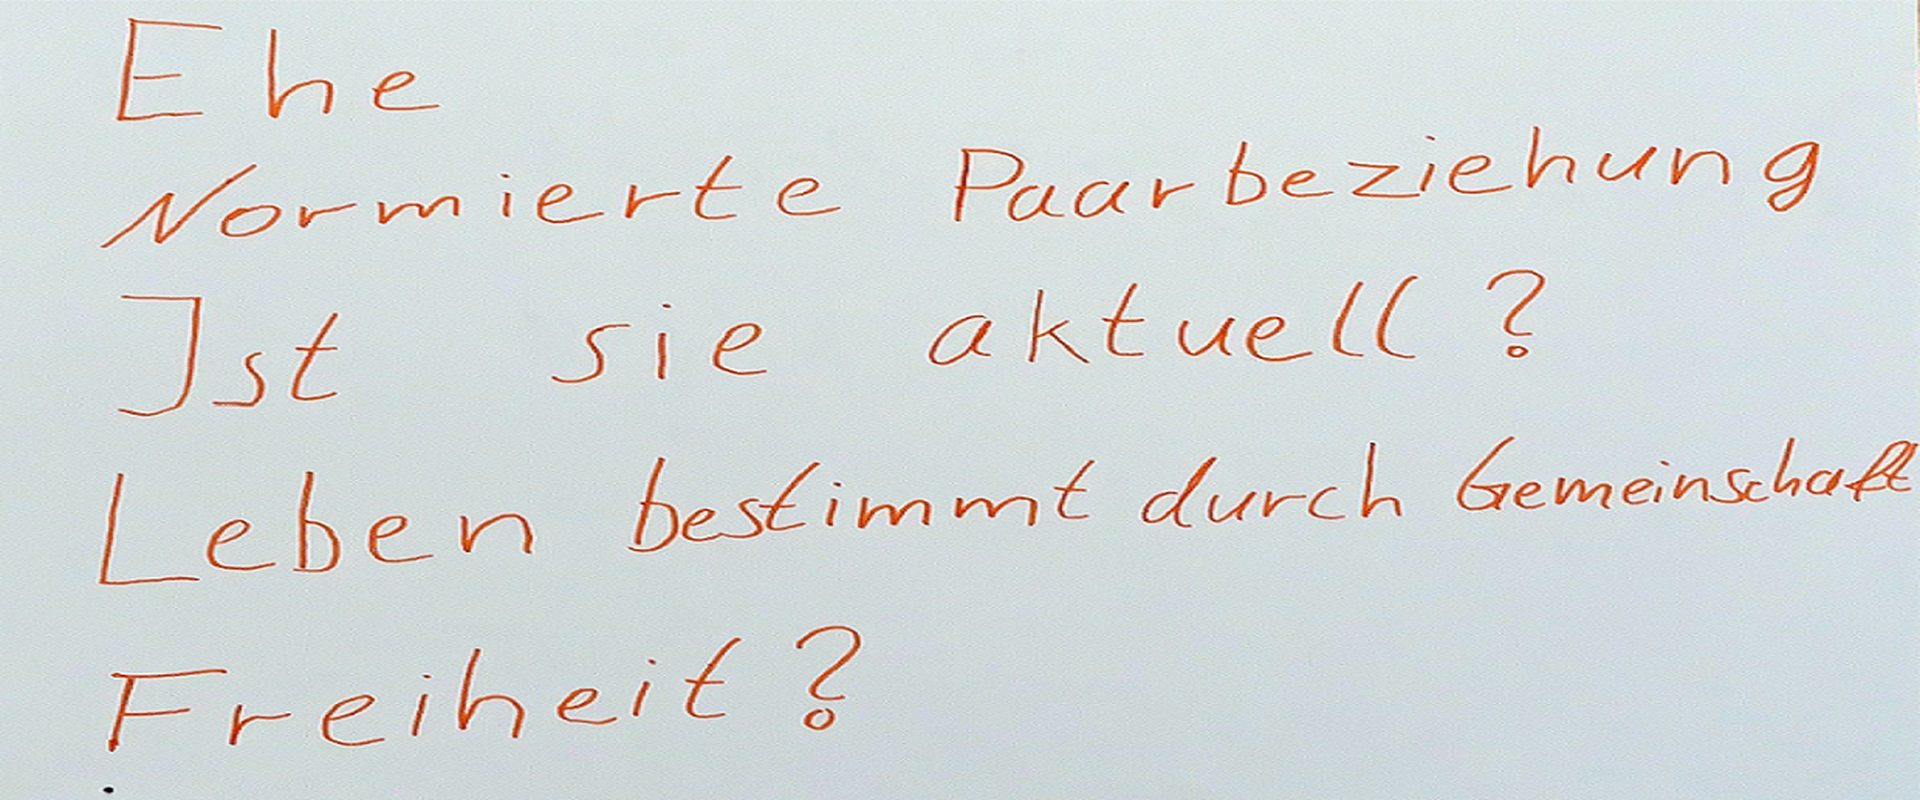 Ehe
Normierte Paarbeziehung
Ist sie aktuell?
Leben bestimmt durch Gemeinschaft
Freiheit?